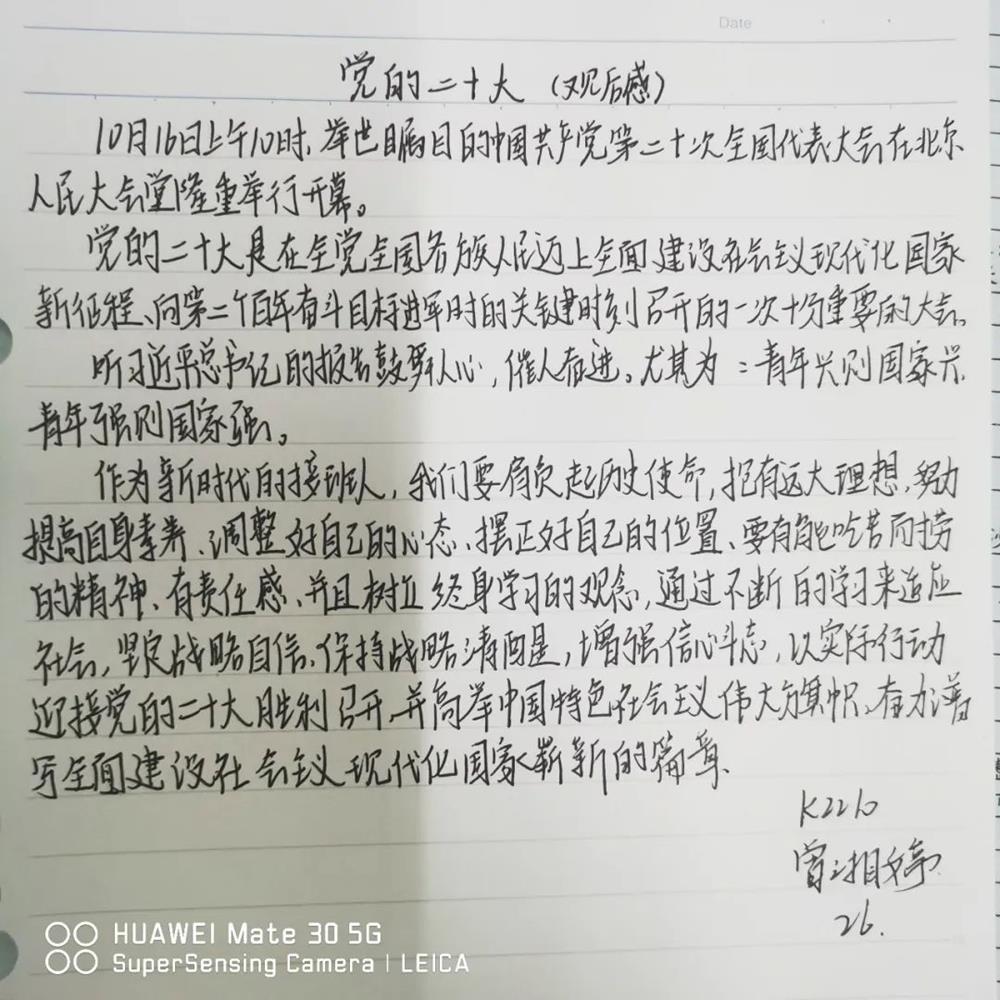 Date
党的二十大（观后感）
10月16日上午10时、举世瞩目的中国共产党第二十次全国代表大会在北京
人民大会堂隆重举行开幕。
党的二十大是在全党全国各族人民迈上全面建设社会主义现代化国家
新征程、向第二个百年奋斗目标进军时的关键时刻召开的一次十分重要的大会。
听习近平总书记的报告鼓舞人心，催人奋进。尤其为：青年兴则国家兴
青年强则国家强。
作为新时代的接班人，我们要肩负起历史使命，抱有远大理想，努力
提高自身素养、调整好自己的心态、摆正好自己的位置、要有能吃苦而劳
的精神、有责任感、并且树立终身学习的观念，通过不断的学习来适应
社会，坚定战略自信、保持战略清醒，增强信心斗志，以实际行动
迎接党的二十大胜利召开，并高举中国特色社会主义伟大旗帜、奋力谱
写全面建设社会主义现代化国家崭新的篇章、
K2210
曾湘婷
26.
HUAWEI Mate 30 5G
SuperSensing Camera | LEICA